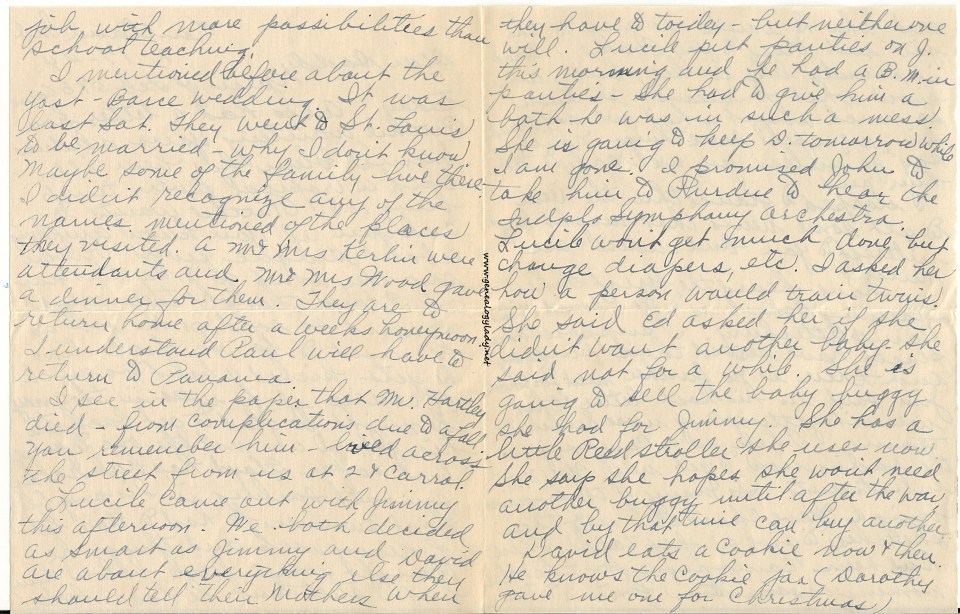 job with more possibilities than
school teaching.
I mentioned before about the
Yost - Barce wedding. It was
last Sat. They went to St. Louis
to be married - why I don't know
Maybe some of the family live there.
I didn't recognize any of the
names mentioned of the places
they visited. A Mr & Mrs Kerlin were
attendants and Mr & Mrs Wood gave
a dinner for them. They are to
return home after a weeks honeymoon.
I understand Paul will have to
return to Panama.
I see in the paper that Mr. Hartley
died - from complications due to a fall
You remember him - lived across
the street from us at 2 & Carrol.
Lucile came out with Jimmy
this afternoon. We both decided
as smart as Jimmy and David
are about everything else they
should tell their Mothers when
they have to toidey - but neither one
will. Lucile put panties on J.
this morning and he had a B.M. in
panties - She had to give him a
bath he was in such a mess.
She is going to keep D. tomorrow while
I am gone. I promised John to
take him to Purdue to hear the
Indpls Symphony orchestra.
Lucile won't get much done but
change diapers, etc. I asked her
how a person would train twins.
She said Ed asked her if she
didn't want another baby. She
said not for a while. She is
going to sell the baby buggy
she had for Jimmy. She has a
little Reed stroller she uses now
She says she hopes she won't need
another buggy until after the war
and by that time can buy another.
David eats a cookie now & then.
He knows the cookie jar (Dorothy
gave me one for Christmas)
www.genealogylady.net